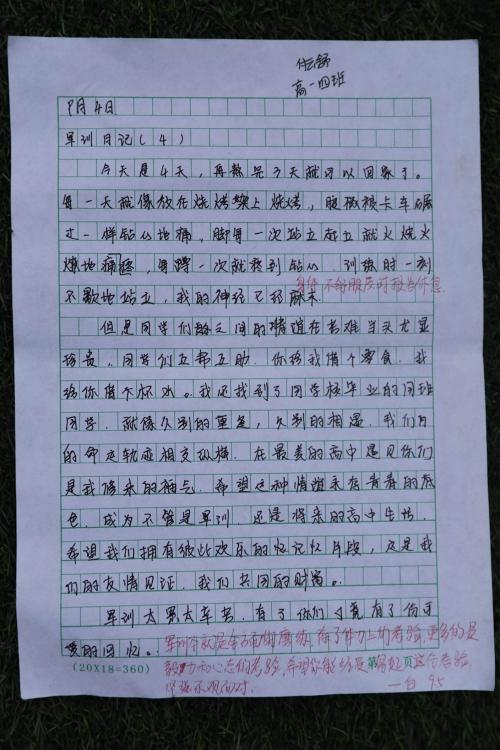 高一四班
9月4日
军训日记(4)
今天是4天，再熬些3天就可以回家了。
每一天就像放在烧烤架上烧烤，腿像被卡车碾
过一样钻心地痛，脚每一次站立起立就火烧火
燎地痛疼，每蹲一次就疼到钻心，训练时一刻
身体不舒服应时报告休息
不歇地站立，我的神经已经麻木
但是同学们之间的情谊在苦难当头尤显
珍贵，同学们互帮互助，你给我借个零食，我
给你借个杯水。我还找到了同学校毕业的同班
同学，就像久别的重逢，久别的相遇，我们
的命运轨迹相交纵横，在最美的高中遇见你们
是我修来的福气，希望这种情谊永存青春的底
色，成为不管是军训，还是将来的高中生活，
希望我们拥有彼此欢乐的忆记忆片段，这是我
们的友情见证，我们共同的财富。
军训太累太辛苦，有了你们才竟有了份可
爱的回忆。
军训本就是全方面的磨练，除了体力上的考验，更多的是
毅力和心态的考验，希望你能经受
坚强乐观面对。
(20X18=360)
第 页
95